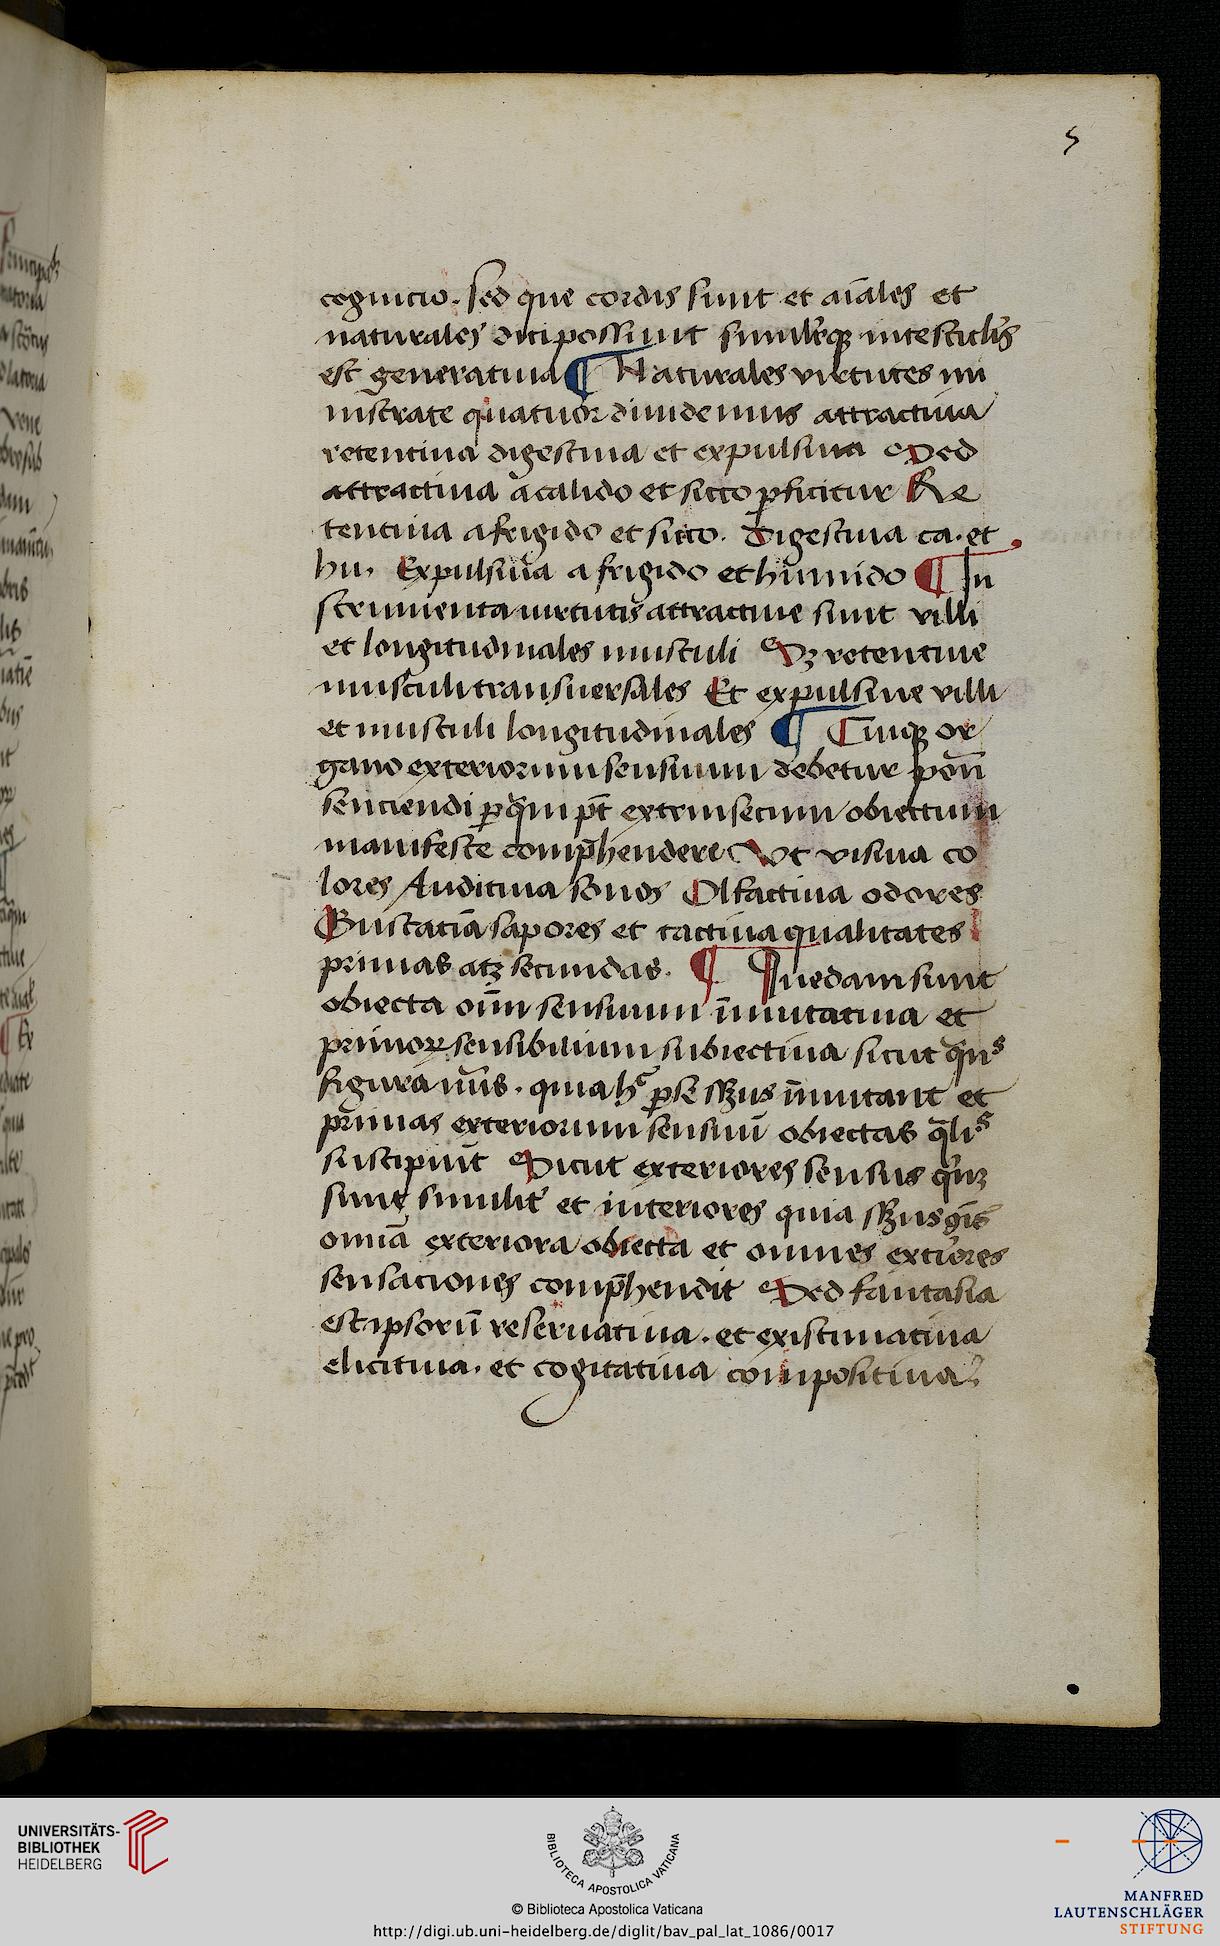 5
cognicio. sed que cordis sunt et aīales et
naturales dici possunt simil'rqꝫ in testicul'is
est generatiua ¶ Naturales virtutes mi
nistrate quatuor diuidemus attractiua
retentiua digestiua et expulsiua Sed
attractiua a calido et sicco ꝑficitur Re
tentiua a frigido et sicco. Digestiua ca. et
hu. Expulsiua a frigido et humido ¶ In
strumenta uirtutis attractiue sunt villi
et longitudinales musculi Sꝫ retentiue
musculi transuersales Et expulsiue villi
et musculi longitudinales ¶ Cuiqꝫ or
gano exteriorum sensuum debetur pōn
senciendi ꝑ quā pt̄ extrinsecum obiectum
manifeste comp̄hendere Vt visiua co
lores Auditiua sonos Olfactiua odores
Gustatīa sapores et tactiua qualitates
primas atqꝫ secundas. ¶ Quedam sunt
obiecta oīm sensuum īmutatiua et
primoꝝ sensibilium subiectiua sicut
figura quia ꝑ se īmutant et
primas exteriorum sensuū obiectas q̄li
suscipiūt Sicut exteriores sensus
sunt similit' et interiores quia
omīa exteriora obiecta et omnes exti'ores
sensaciones comp̄hendit Sed fantasia
est ipsorū reseruatiua. et existimatiua
elicitiua. et cogitatiua compositiua.
UNIVERSITÄTS-
BIBLIOTHEK
HEIDELBERG
BIBLIOTECA APOSTOLICA VATICANA
© Biblioteca Apostolica Vaticana
http://digi.ub.uni-heidelberg.de/diglit/bav_pal_lat_1086/0017
MANFRED
LAUTENSCHLÄGER
STIFTUNG